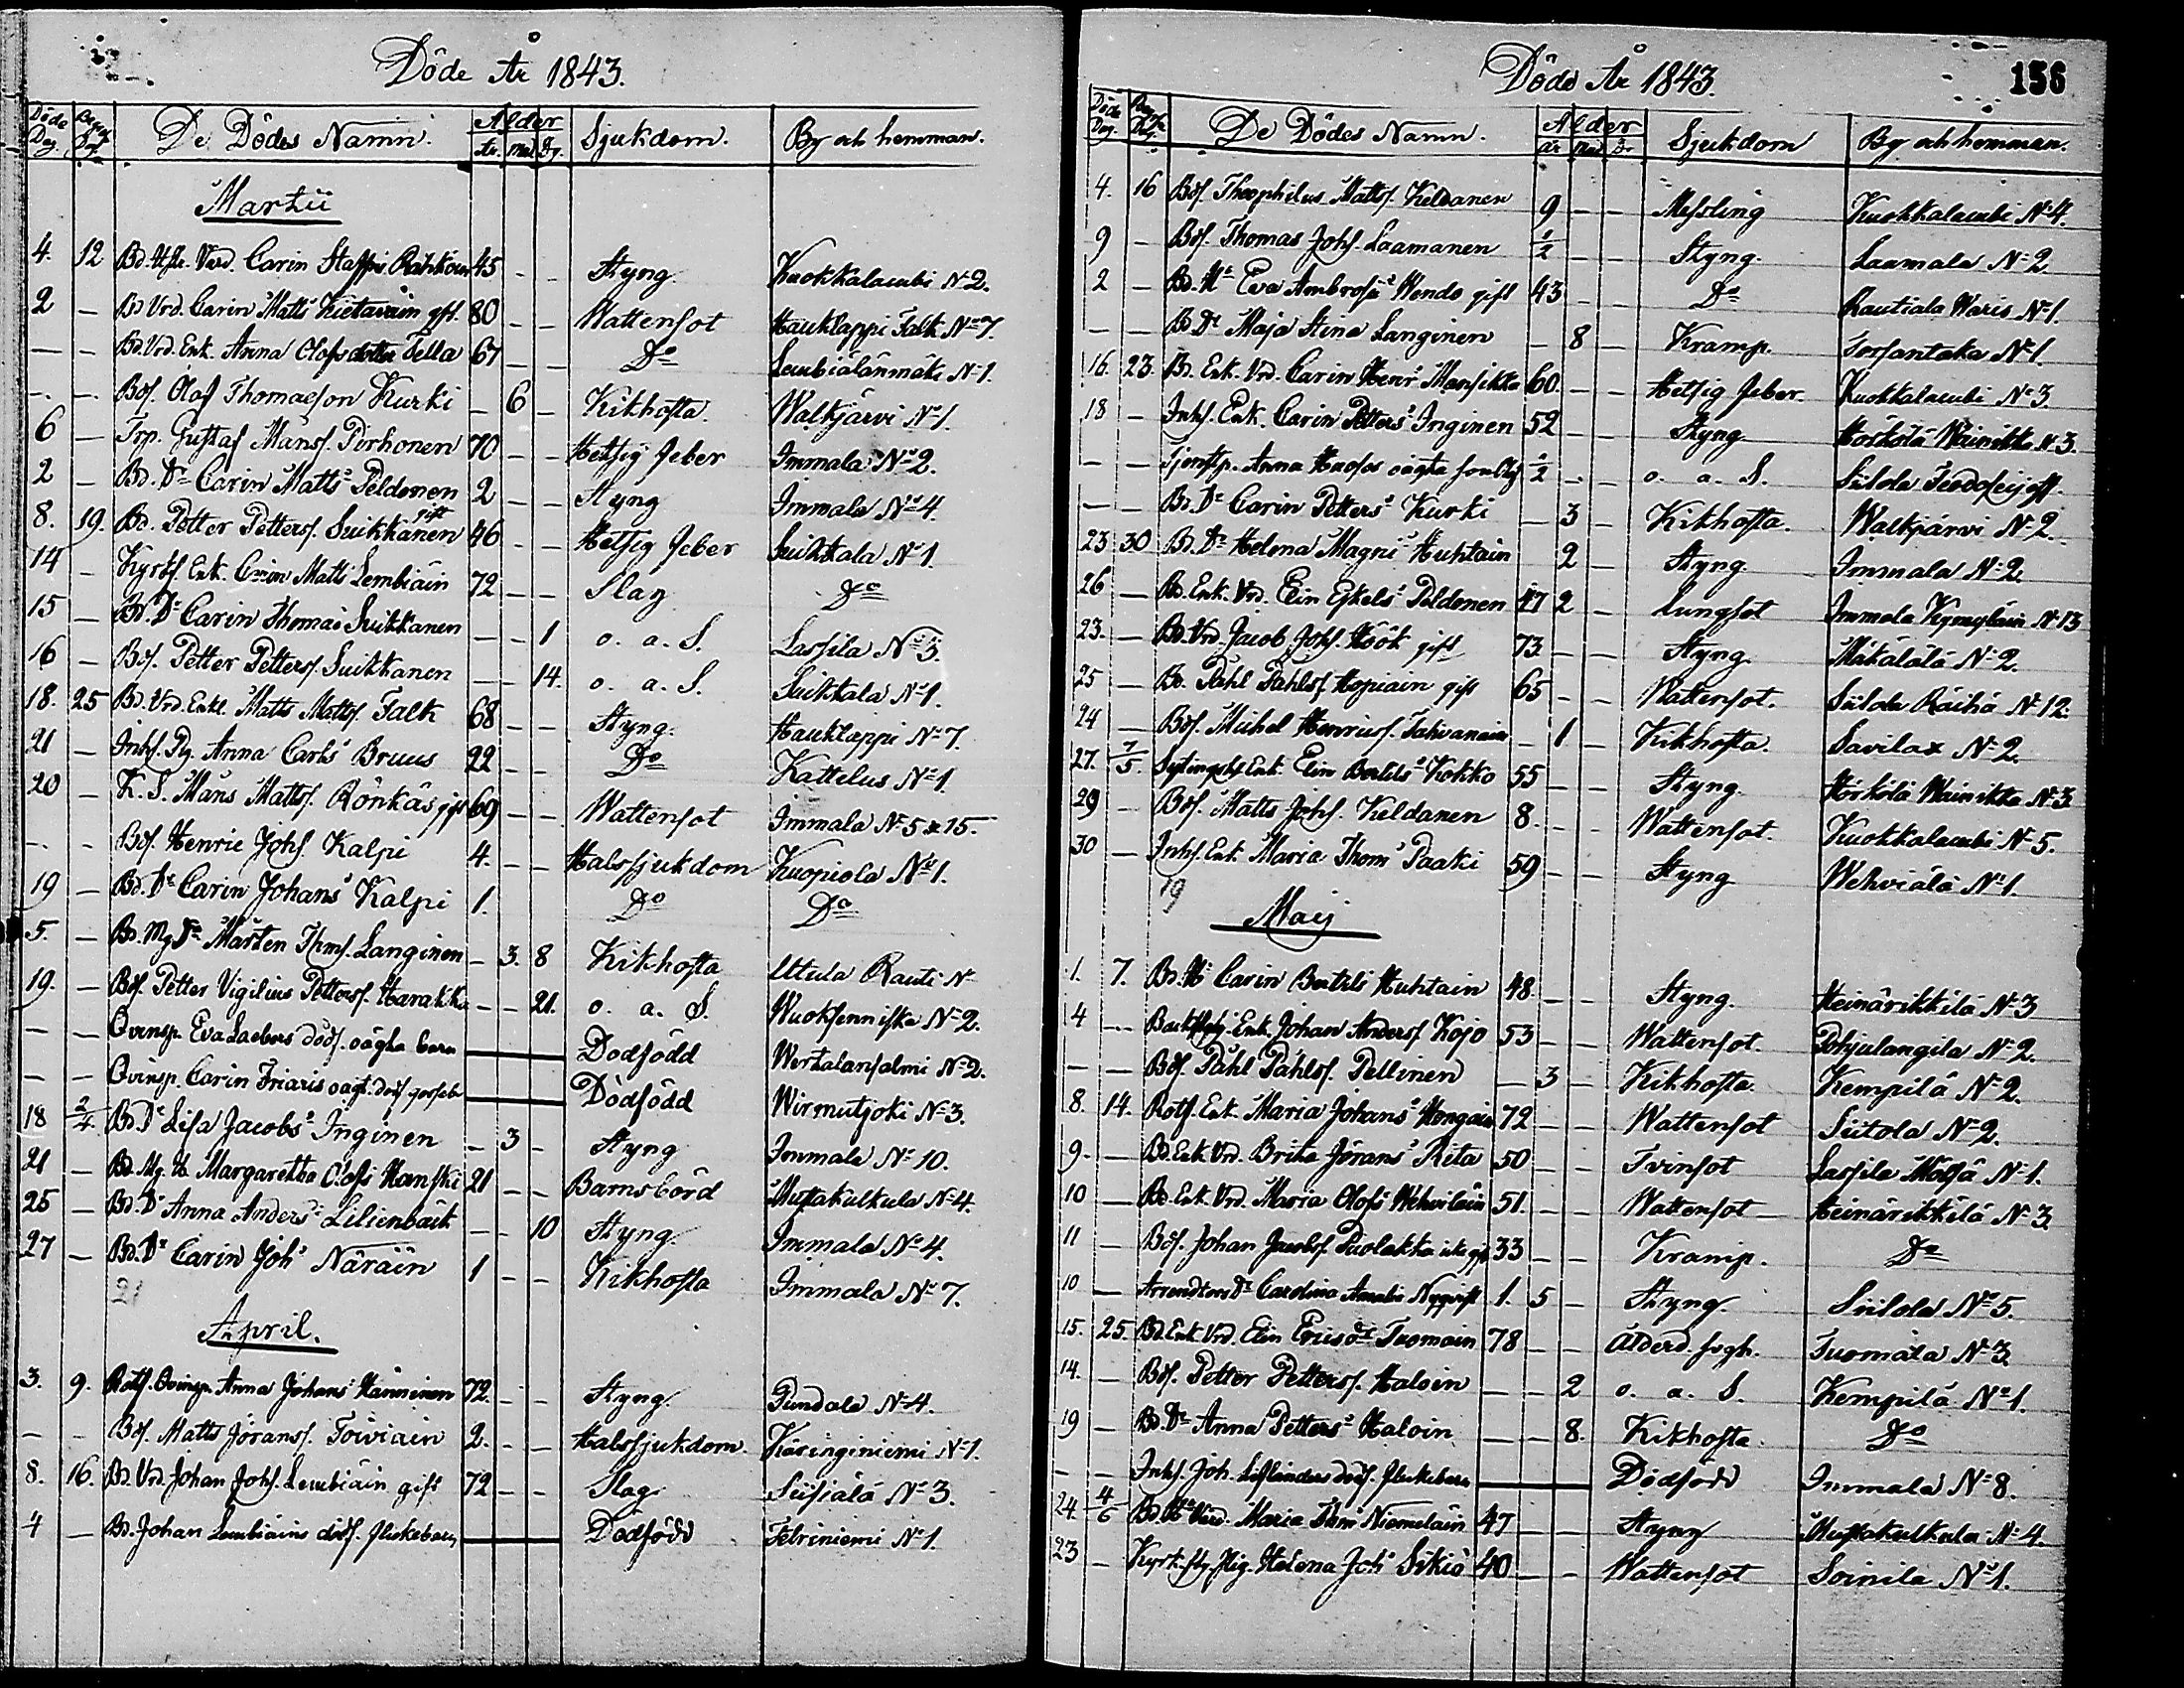 Döde År 1843.
Döde Dag. Begr. Dag De Dödes Namn. Ålder år. Mån Dg. Sjukdom. By och hemman.
Martii
4. 12 Bd. Vrd. Carin Staffs 45 - - Styng. Kuokkalambi N:2.
2 - Bd Vrd. Carin Matts Kietaväin gft. 80 - - Wattensot Hauklappi Falk N:o 7.
- - Bd. Vrd. Enk. Anna Olofsdotter Tella 67 - - Do Lembiälänmäki N:1.
- - Bds. Olof Thomasson Kurki - 6 - Kikhosta. Walkjärvi N:o 1.
6 - Trp. Gustaf Månss. Porhonen 70 - - Hetsig feber Immala N:o 2.
2 - Bd. Dr Carin Matts Peldonen 2 - - Styng Immala N:o 4.
8. 19. Bd. Petter Petterss. Suikkanen gift 46 - - Hetsig feber Suikkala N:o 1.
14 - Enk. Carin Matts Lembiäin 72 - - Slag Do
15 - Bd. Dr Carin Thomas Suikkanen - - 1 o. a. S. Lassila N:o 3.
16 - Bds. Petter Petterss. Suikkanen - - 14. o. a. S. Suikkala N:o 1.
18. 25 Bd. Vrd. Enkl. Matts Matts. Falk 68 - - Styng. Hauklappi N:o 7.
21 - Inhs. Pg. Anna Carls Bruus 22 - - Do Kattelus N:o 1.
20 - K. S. Måns Mattss. Rönkäs gift 69 - - Wattensot Immala N:o 5 & 15.
- - Bds. Henric Johs. Kalpi 4. - - Halssjukdom Kuopiola N:o 1.
19 - Bd. Dr Carin Johans Kalpi 1. Do Do
5. - Bd. Mg Sn Mårten Thms. Langinen - 3. 8 Kikhosta Utula Rauti N
19. - Bds. Petter Vigilius Petterss. Harakka - - 21. o. a. S. Wuoksenniska N:o 2.
- - Qvinsp. Eva döds. oägta barn Dödfödd Werkalansalmi N:o 2.
- - Qvinsp. Carin Friaris oägt. döds. Dödfödd Wirmutjoki N:3.
18 2/4 Bd. Dr Lisa Jacobs Inginen - 3 - Styng Immala N:o 10.
21 - Bd. Mg. H. Margaretha Olofs Hanski 21 - - Barnsbörd Mustakulkula N:4.
25 - Bd. Dr Anna Anders Lilienbäck - - 10 Styng. Immala N:o 4.
27 - Bd. Dr Carin Joh. Näräin 1 - - Kikhosta Immala N:o 7.
21
April.
3. 9. Rotfs. Qvinsp. Anna Johans Hänninen 72. - - Styng. Pundala N:4.
- - Bds. Matts Jöranss. Toiviain 2. - - Halssjukdom. Käringiniemi N:1.
8. 16. Bd. Vrd. Johan Johs. Lembiäin gift 72 - - Slag Siisiälä N:o 3.
4 - Bd. Johan Lembiäins döds. flickebarn Dödfödd Tetriniemi N:o 1.
Döde År 1843.
156
Döde Dag. De Dödes Namn. Ålder år Mån Dr Sjukdom By och hemman.
4. 16 Bds. Theophilus Mattss. Keldanen 9 - - Messling Kuokkalambi N:o 4.
9 - Bds. Thomas Johs. Laamanen 1/2 - - Styng. Laamala N:o 2
2 - Bd. Hu Eva Ambrosii Wendo gift 43 - - Do Rautiala Waris N:o 1.
- - Bd. Dr Maja Stina Langinen - 8 - Kramp. Torsantaka N:o 1.
16. 23. Bd. Enk. Vrd. Carin Henr. Mansikka 60. - - Hetsig feber Kuokkalambi N:o 3.
18 - Inhs. Enk. Carin Petters Inginen 52 - - Styng Wainikka N:3.
- - Tjenstp. Anna oägta 1/2 - - o. a. S. Siitola
- - Bd. Dr Carin Petters Kurki - 3 - Kikhosta. Walkjärvi N:o 2.
23 30 Bd. Dr Helena Magni Huhtain 2 - Styng Immala N:o 2.
26 - Bd. Enk. Vrd. Elin Eskels Peldonen 47 2 - Lungsot Immala N:13
23. - Bd. Vrd. Jacob Johs. Höök gift 73. - - Styng. Mäkälälä N:o 2.
25 - Bd. Påhl Påhlss. Hopiain gift 65 - - Wattensot. Siitola Räihä N:12.
24 - Bds. Michel Henrics. Tahvanain - 1 - Kikhosta. Savilax N:o 2.
27. 7/5. Enk. Elin Bertils Kokko 55 - - Styng. Wainikka N:3
29 - Bds. Matts Johs. Keldanen 8. - - Wattensot. Kuokkalambi N:o 5.
30 - Inhs. Enk. Maria Thom. Paaki 59 - - Styng Wehviälä N:o 1.
19
Maij
1. 7. Bd. Hu Carin Bertils Huhtain 48. - - Styng. Heinärikkilä N:o 3
4 - Enk. Johan Anderss. Kojo 53 - - Wattensot. Pohjalangila N:o 2.
- - Bds. Påhl Påhlss. Pellinen - 3 - Kikhosta. Kempilä N:o 2.
8. 14. Rotfs. Enk. Maria Johans Hongain 72 - - Wattensot Siitola N:o 2.
9. - Bd. Enk. Vrd. Brita Jörans Rita 50 - - Tvinsot Lassila N:o 1.
10 - Bd. Enk. Vrd. Maria Olofs Wehviläin 51. - - Wattensot Heinärikkilä N:o 3
11 - Bds. Johan Jacobs. Puolakka gift 33 - - Kramp. Do
10 - Arrendtors Dr Carolina Amalia Nyqvist 1. 5 - Styng. Siitola N:o 5.
15. 25. Bd. Enk. Vrd. Elin Ericsdr Tuomain 78 - - Ålderd. Tuomäla N:o 3
14. - Bds. Petter Petterss. Haloin - - 2 o. a. S. Kempilä N:o 1.
19 - Bd. Dr Anna Petters Haloin - - 8. Kikhosta. Do
- - Inhs. Joh. döds. flickebarn Dödfödd Immala N:o 8.
24. 4/6 Bd. Hu Vrd. Maria Thm Niemeläin 47 - - Styng Mustakulkula N:4.
23 - Helena Joh. Sikiö 40 - - Wattensot Soinila N:o 1.